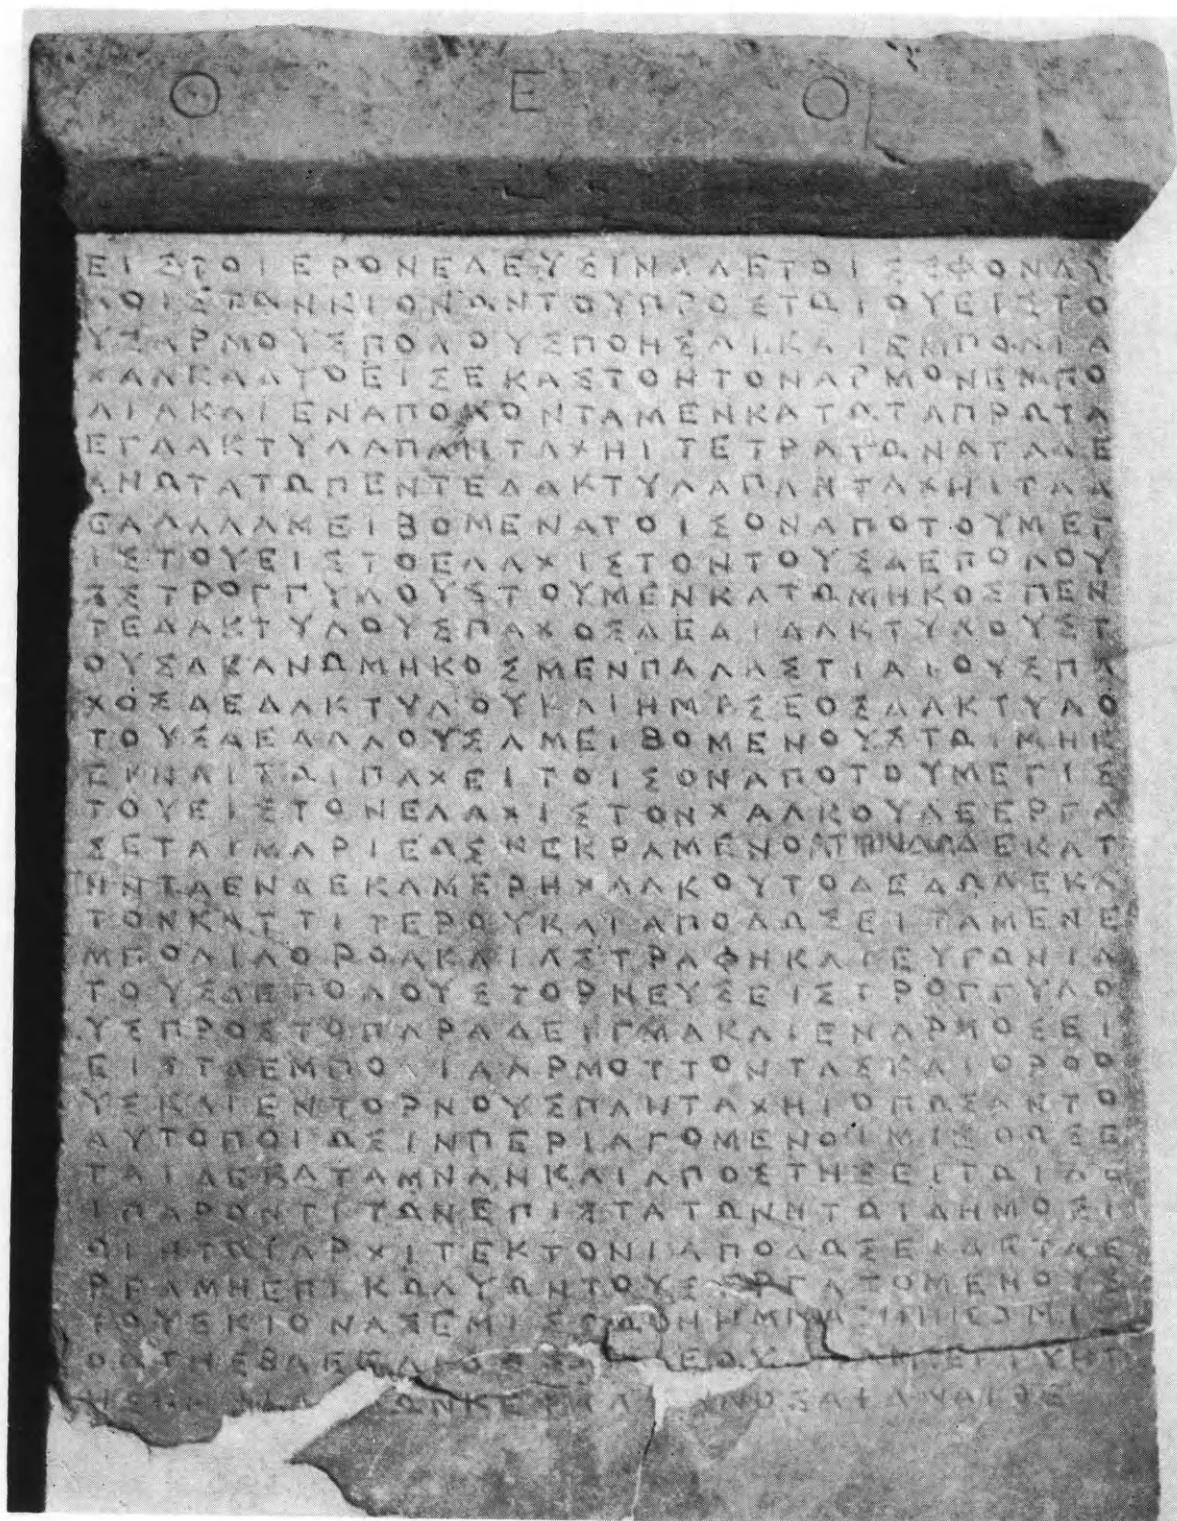 Θ Ε Ο
ΕΙΣΤΟΙΕΡΟΝΕΛΕΥΣΙΝΑΔΕΤΟΙΣΣΦΟΝΔΥ
ΛΟΙΣΤΩΝΚΙΟΝΩΝΤΟΥΠΡΟΣΤΩΙΟΥΕΙΣΤΟ
ΥΣΑΡΜΟΥΣΠΟΛΟΥΣΠΟΗΣΑΙΚΑΙΕΜΠΟΛΙΑ
ΧΑΛΚΑΔΥΟΕΙΣΕΚΑΣΤΟΝΤΟΝΑΡΜΟΝΕΜΠΟ
ΛΙΑΚΑΙΕΝΑΠΟΛΟΝΤΑΜΕΝΚΑΤΩΤΑΠΡΩΤΑ
ΕΓΔΑΚΤΥΛΑΠΑΝΤΑΧΗΙΤΕΤΡΑΓΩΝΑΤΑΔΕ
ΑΝΩΤΑΤΩΠΕΝΤΕΔΑΚΤΥΛΑΠΑΝΤΑΧΗΙΤΑΔ
ΕΑΛΛΑΑΜΕΙΒΟΜΕΝΑΤΟΙΣΟΝΑΠΟΤΟΥΜΕΓ
ΙΣΤΟΥΕΙΣΤΟΕΛΑΧΙΣΤΟΝΤΟΥΣΔΕΠΟΛΟΥ
ΣΣΤΡΟΓΓΥΛΟΥΣΤΟΥΜΕΝΚΑΤΩΜΗΚΟΣΠΕΝ
ΤΕΔΑΚΤΥΛΟΥΣΠΑΧΟΣΔΕΔΙΔΑΚΤΥΛΟΥΣΤ
ΟΥΣΔΑΚΑΝΩΜΗΚΟΣΜΕΝΠΑΛΑΣΤΙΑΙΟΥΣΠΑ
ΧΟΣΔΕΔΑΚΤΥΛΟΥΚΑΙΗΜΥΣΕΟΣΔΑΚΤΥΛΟ
ΤΟΥΣΔΕΑΛΛΟΥΣΑΜΕΙΒΟΜΕΝΟΥΣΤΩΙΜΗΚ
ΕΙΚΑΙΤΩΙΠΑΧΕΙΤΟΙΣΟΝΑΠΟΤΟΥΜΕΓΙΣ
ΤΟΥΕΙΣΤΟΝΕΛΑΧΙΣΤΟΝΧΑΛΚΟΥΔΕΕΡΓΑ
ΣΕΤΑΙΜΑΡΙΕΩΣΚΕΚΡΑΜΕΝΟΥΤΗΝΔΩΔΕΚΑΤ
ΗΝΤΑΕΝΔΕΚΑΜΕΡΗΧΑΛΚΟΥΤΟΔΕΔΩΔΕΚΑ
ΤΟΝΚΑΤΤΙΤΕΡΟΥΚΑΙΑΠΟΔΩΣΕΙΤΑΜΕΝΕ
ΜΠΟΛΙΑΟΡΘΑΚΑΙΑΣΤΡΑΦΗΚΑΙΕΥΓΩΝΙΑ
ΤΟΥΣΔΕΠΟΛΟΥΣΤΟΡΝΕΥΣΕΙΣΤΡΟΓΓΥΛΟ
ΥΣΠΡΟΣΤΟΠΑΡΑΔΕΙΓΜΑΚΑΙΕΝΑΡΜΟΣΕΙ
ΕΙΣΤΑΕΜΠΟΛΙΑΑΡΜΟΤΤΟΝΤΑΣΚΑΙΟΡΘΟ
ΥΣΚΑΙΕΝΤΟΡΝΟΥΣΠΑΝΤΑΧΗΙΟΠΩΣΑΝΤΟ
ΑΥΤΟΠΟΙΩΣΙΝΠΕΡΙΑΓΟΜΕΝΟΙΜΙΣΘΩΣΕ
ΤΑΙΔΕΚΑΤΑΜΝΑΝΚΑΙΑΠΟΣΤΗΣΕΙΤΩΙΑΕ
ΙΠΑΡΟΝΤΙΤΩΝΕΠΙΣΤΑΤΩΝΗΤΩΙΔΗΜΟΣΙ
ΩΙΗΤΩΙΑΡΧΙΤΕΚΤΟΝΙΑΠΟΔΩΣΕΙΔΕΤΑΕ
ΡΓΑΜΗΕΠΙΚΩΛΥΩΝΤΟΥΣΕΡΓΑΖΟΜΕΝΟΥΣ
ΤΟΥΣΚΙΟΝΑΣΕΜΙΣΘΩΘΗΗΜΝΑ